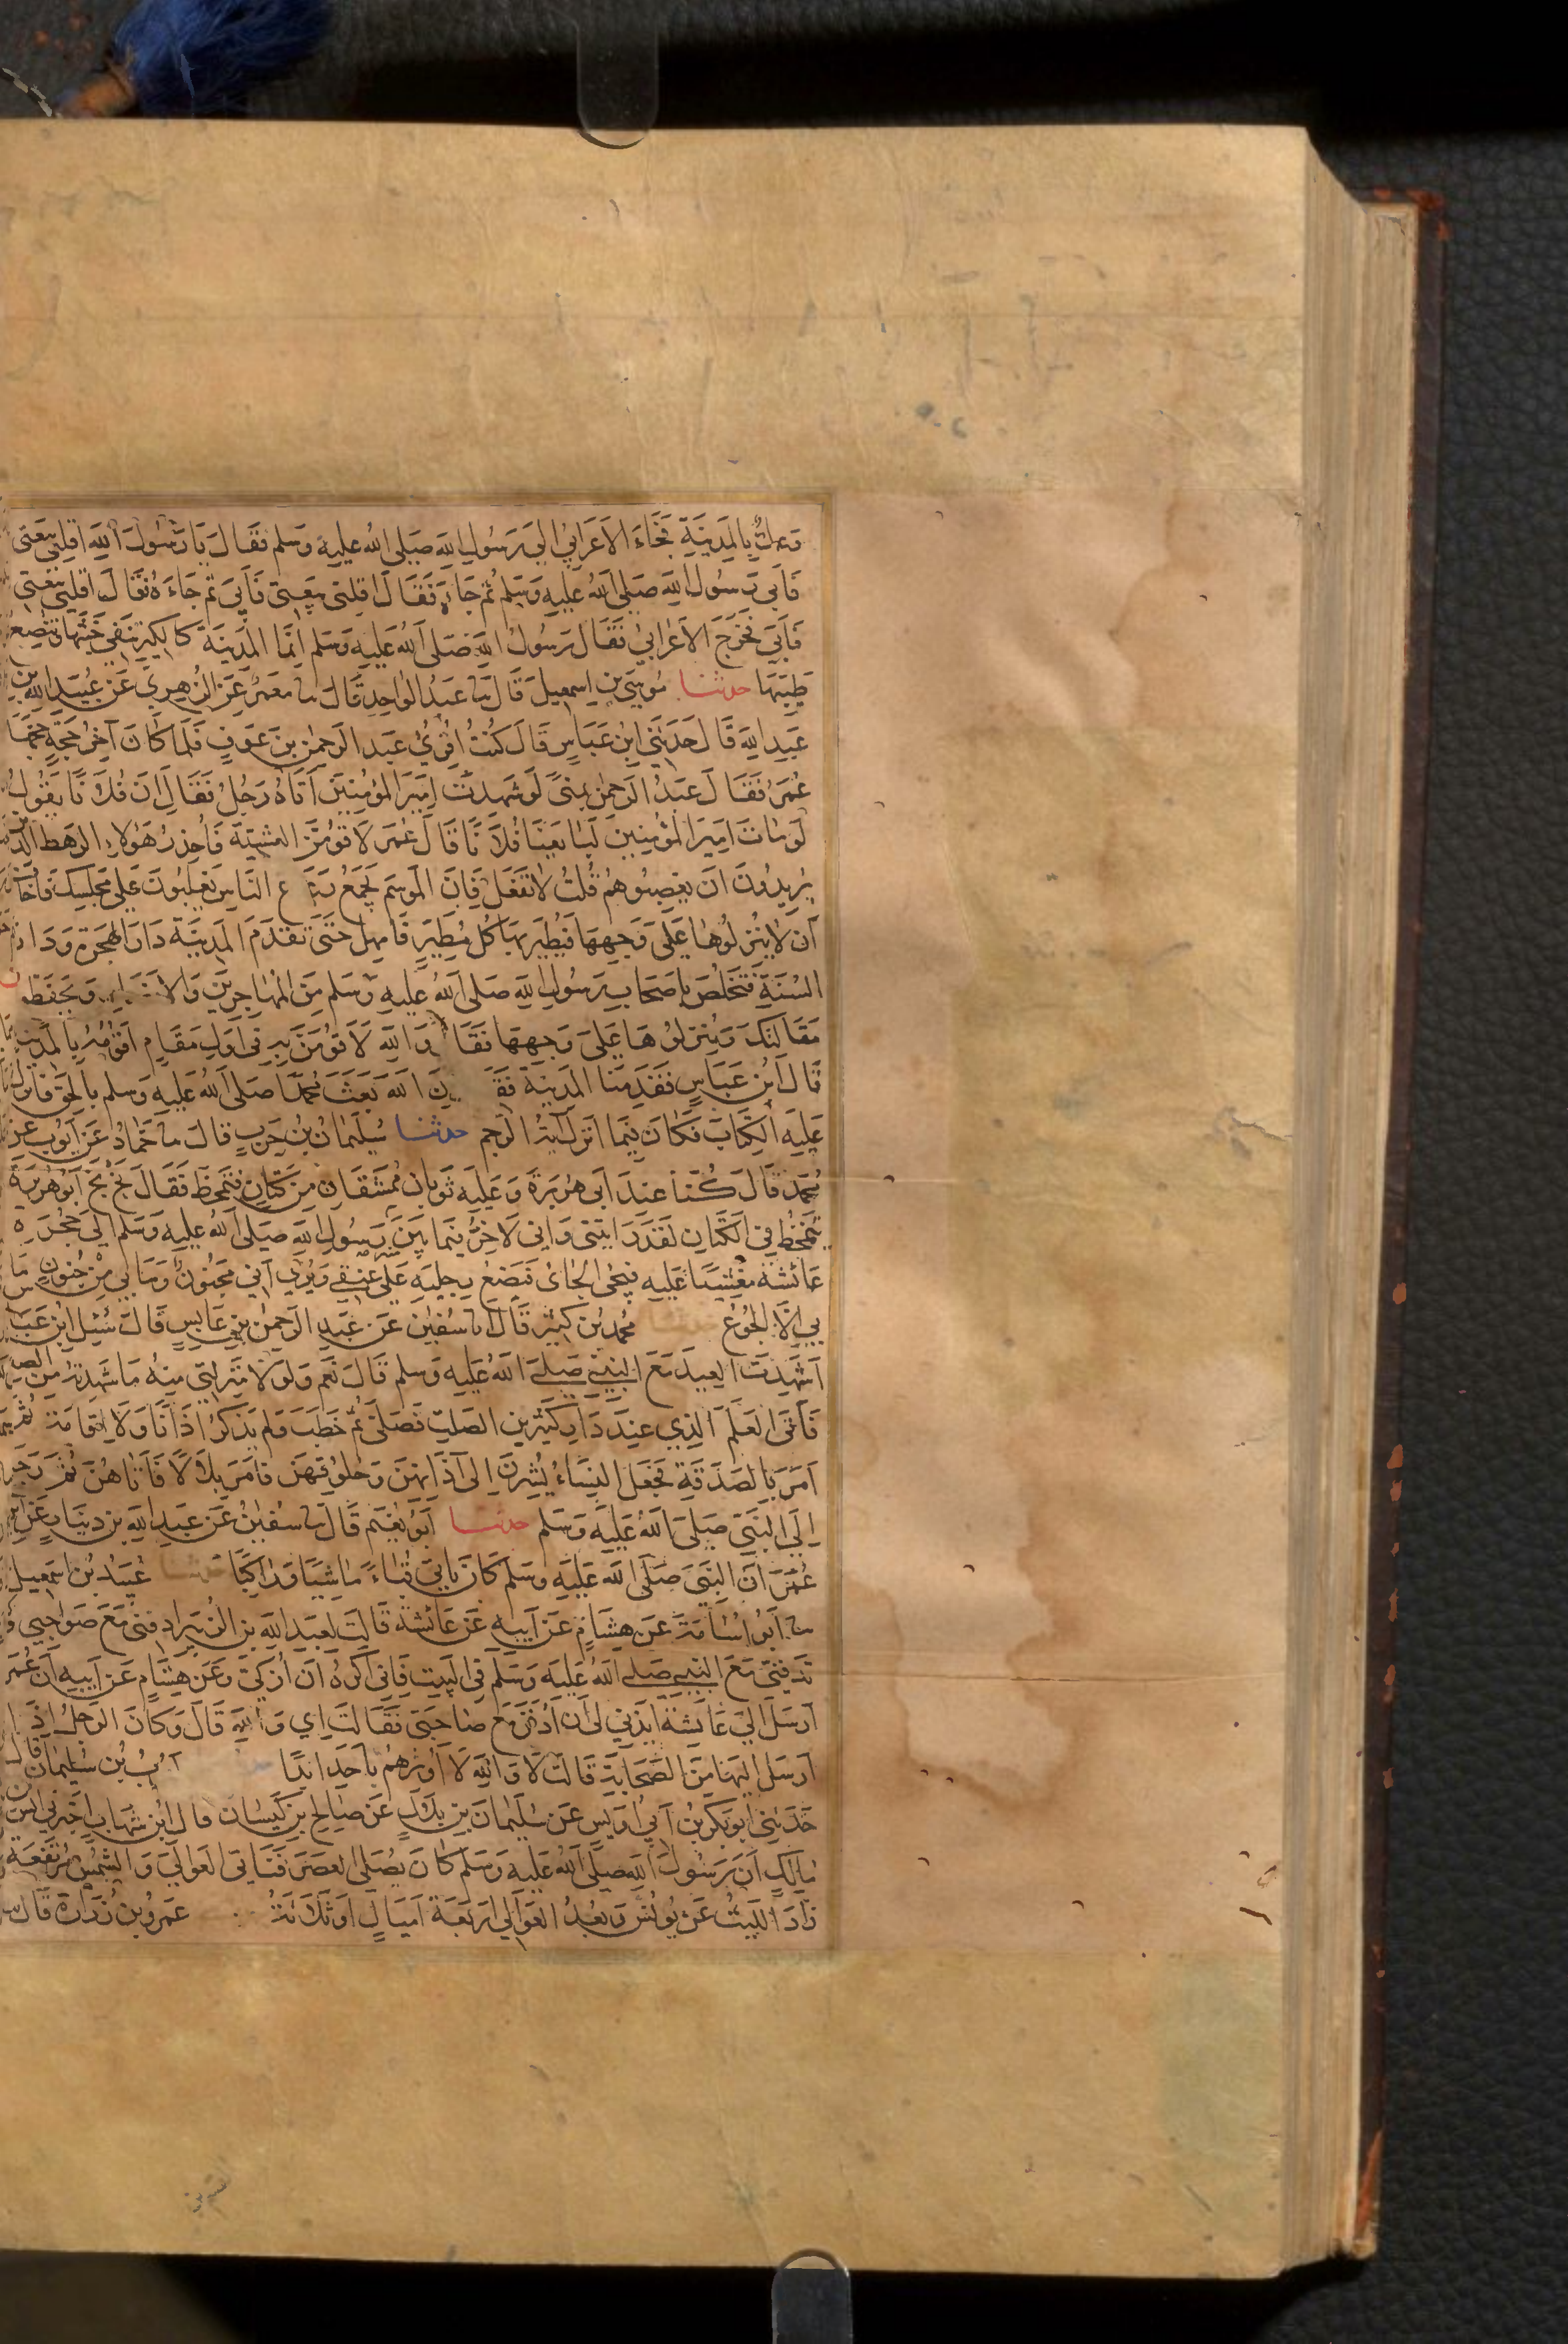 وعك بالمدينة فجاء الاعرابي الى رسول الله صلى الله عليه وسلم فقال يا رسول الله اقلني بيعتي
فابى رسول الله صلى الله عليه وسلم ثم جاءه فقال اقلني بيعتي فابى ثم جاءه فقال اقلني بيعتي
فابى فخرج الاعرابي فقال رسول الله صلى الله عليه وسلم انما المدينة كالكير تنفي خبثها وتنصع
طيبها حدثنا موسى بن اسمعيل قال نا عبد الواحد قال نا معمر عن الزهري عن عبيد الله بن
عبد الله قال حدثني ابن عباس قال كنت اقرئ عبد الرحمن بن عوف فلما كان آخر حجة حجها
عمر فقال عبد الرحمن بمنى لو شهدت امير المؤمنين اتاه رجل فقال ان فلانا يقول
لو مات امير المؤمنين لبايعنا فلانا قال عمر لاقومن العشية فاحذر هؤلاء الرهط الذين
يريدون ان يغصبوهم قلت لا تفعل فان الموسم يجمع رعاع الناس يغلبون على مجلسك فاخاف
ان لا ينزلوها على وجهها فيطير بها كل مطير فامهل حتى تقدم المدينة دار الهجرة ودار
السنة فتخلص باصحاب رسول الله صلى الله عليه وسلم من المهاجرين والانصار ويحفظون
مقالتك وينزلوها على وجهها فقال والله لاقومن به في اول مقام اقومه بالمدينة
قال ابن عباس فقدمنا المدينة فقال ان الله بعث محمدا صلى الله عليه وسلم بالحق فانزل
عليه الكتاب فكان فيما انزل آية الرجم حدثنا سليمان بن حرب قال نا حماد عن ايوب عن
محمد قال كنا عند ابي هريرة وعليه ثوبان ممشقان من كتان فتمخط فقال بخ بخ ابو هريرة
يتمخط في الكتان لقد رايتني واني لاخر فيما بين رسول الله صلى الله عليه وسلم الى حجرة
عائشة مغشيا عليه فيجئ الجائ فيضع رجليه على عنقي ويرى اني مجنون وما بي من جنون ما
بي الا الجوع حدثنا محمد بن كثير قال نا سفين عن عبد الرحمن بن عابس قال سئل ابن عباس
اشهدت العيد مع النبي صلى الله عليه وسلم قال نعم ولولا منزلتي منه ما شهدته من الصغر
فاتى العلم الذي عند دار كثير بن الصلت فصلى ثم خطب ولم يذكر اذانا ولا اقامة ثم
امر بالصدقة فجعل النساء يشرن الى آذانهن وحلوقهن فامر بلالا فاتاهن ثم رجع
الى النبي صلى الله عليه وسلم حدثنا ابو نعيم قال نا سفين عن عبد الله بن دينار عن ابن
عمر ان النبي صلى الله عليه وسلم كان ياتي قباء ماشيا وراكبا حدثنا عبيد بن اسمعيل
نا ابو اسامة عن هشام عن ابيه عن عائشة قالت لعبد الله بن الزبير ادفني مع صواحبي و
تدفني مع النبي صلى الله عليه وسلم في البيت فاني اكره ان ازكى وعن هشام عن ابيه ان عمر
ارسل الى عائشة ايذني لي ان ادفن مع صاحبي فقالت اي والله قال وكان الرجل اذا
ارسل اليها من الصحابة قالت لا والله لا اوثرهم باحد ابدا ايوب بن سليمان قال
حدثني ابو بكر بن ابي اويس عن سليمان بن بلال عن صالح بن كيسان قال ابن شهاب اخبرني انس بن
مالك ان رسول الله صلى الله عليه وسلم كان يصلي العصر فتاتي العوالي والشمس مرتفعة
زاد الليث عن يونس وبعد العوالي اربعة اميال او ثلاثة عمرو بن زرارة قال نا